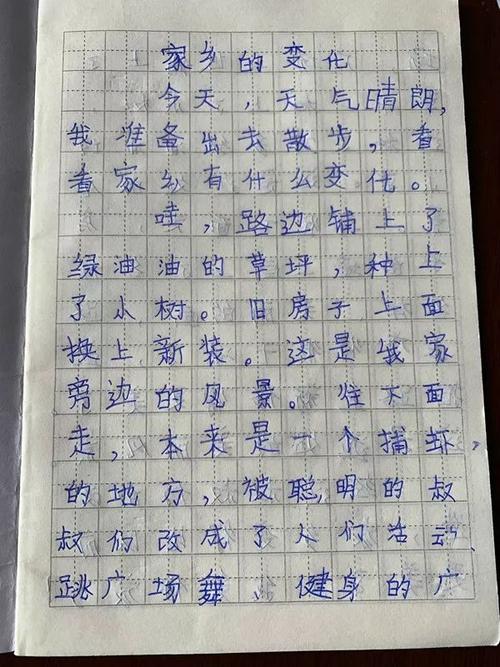 家乡的变化
今天，天气晴朗，
我准备出去散步，看
看家乡有什么变化。
哇，路边铺上了
绿油油的草坪，种上
了小树。旧房子上面
换上新装。这是我家
旁边的风景。往下面
走，本来是一个捕虾
的地方，被聪明的叔
叔们改成了人们活动、
跳广场舞、健身的广